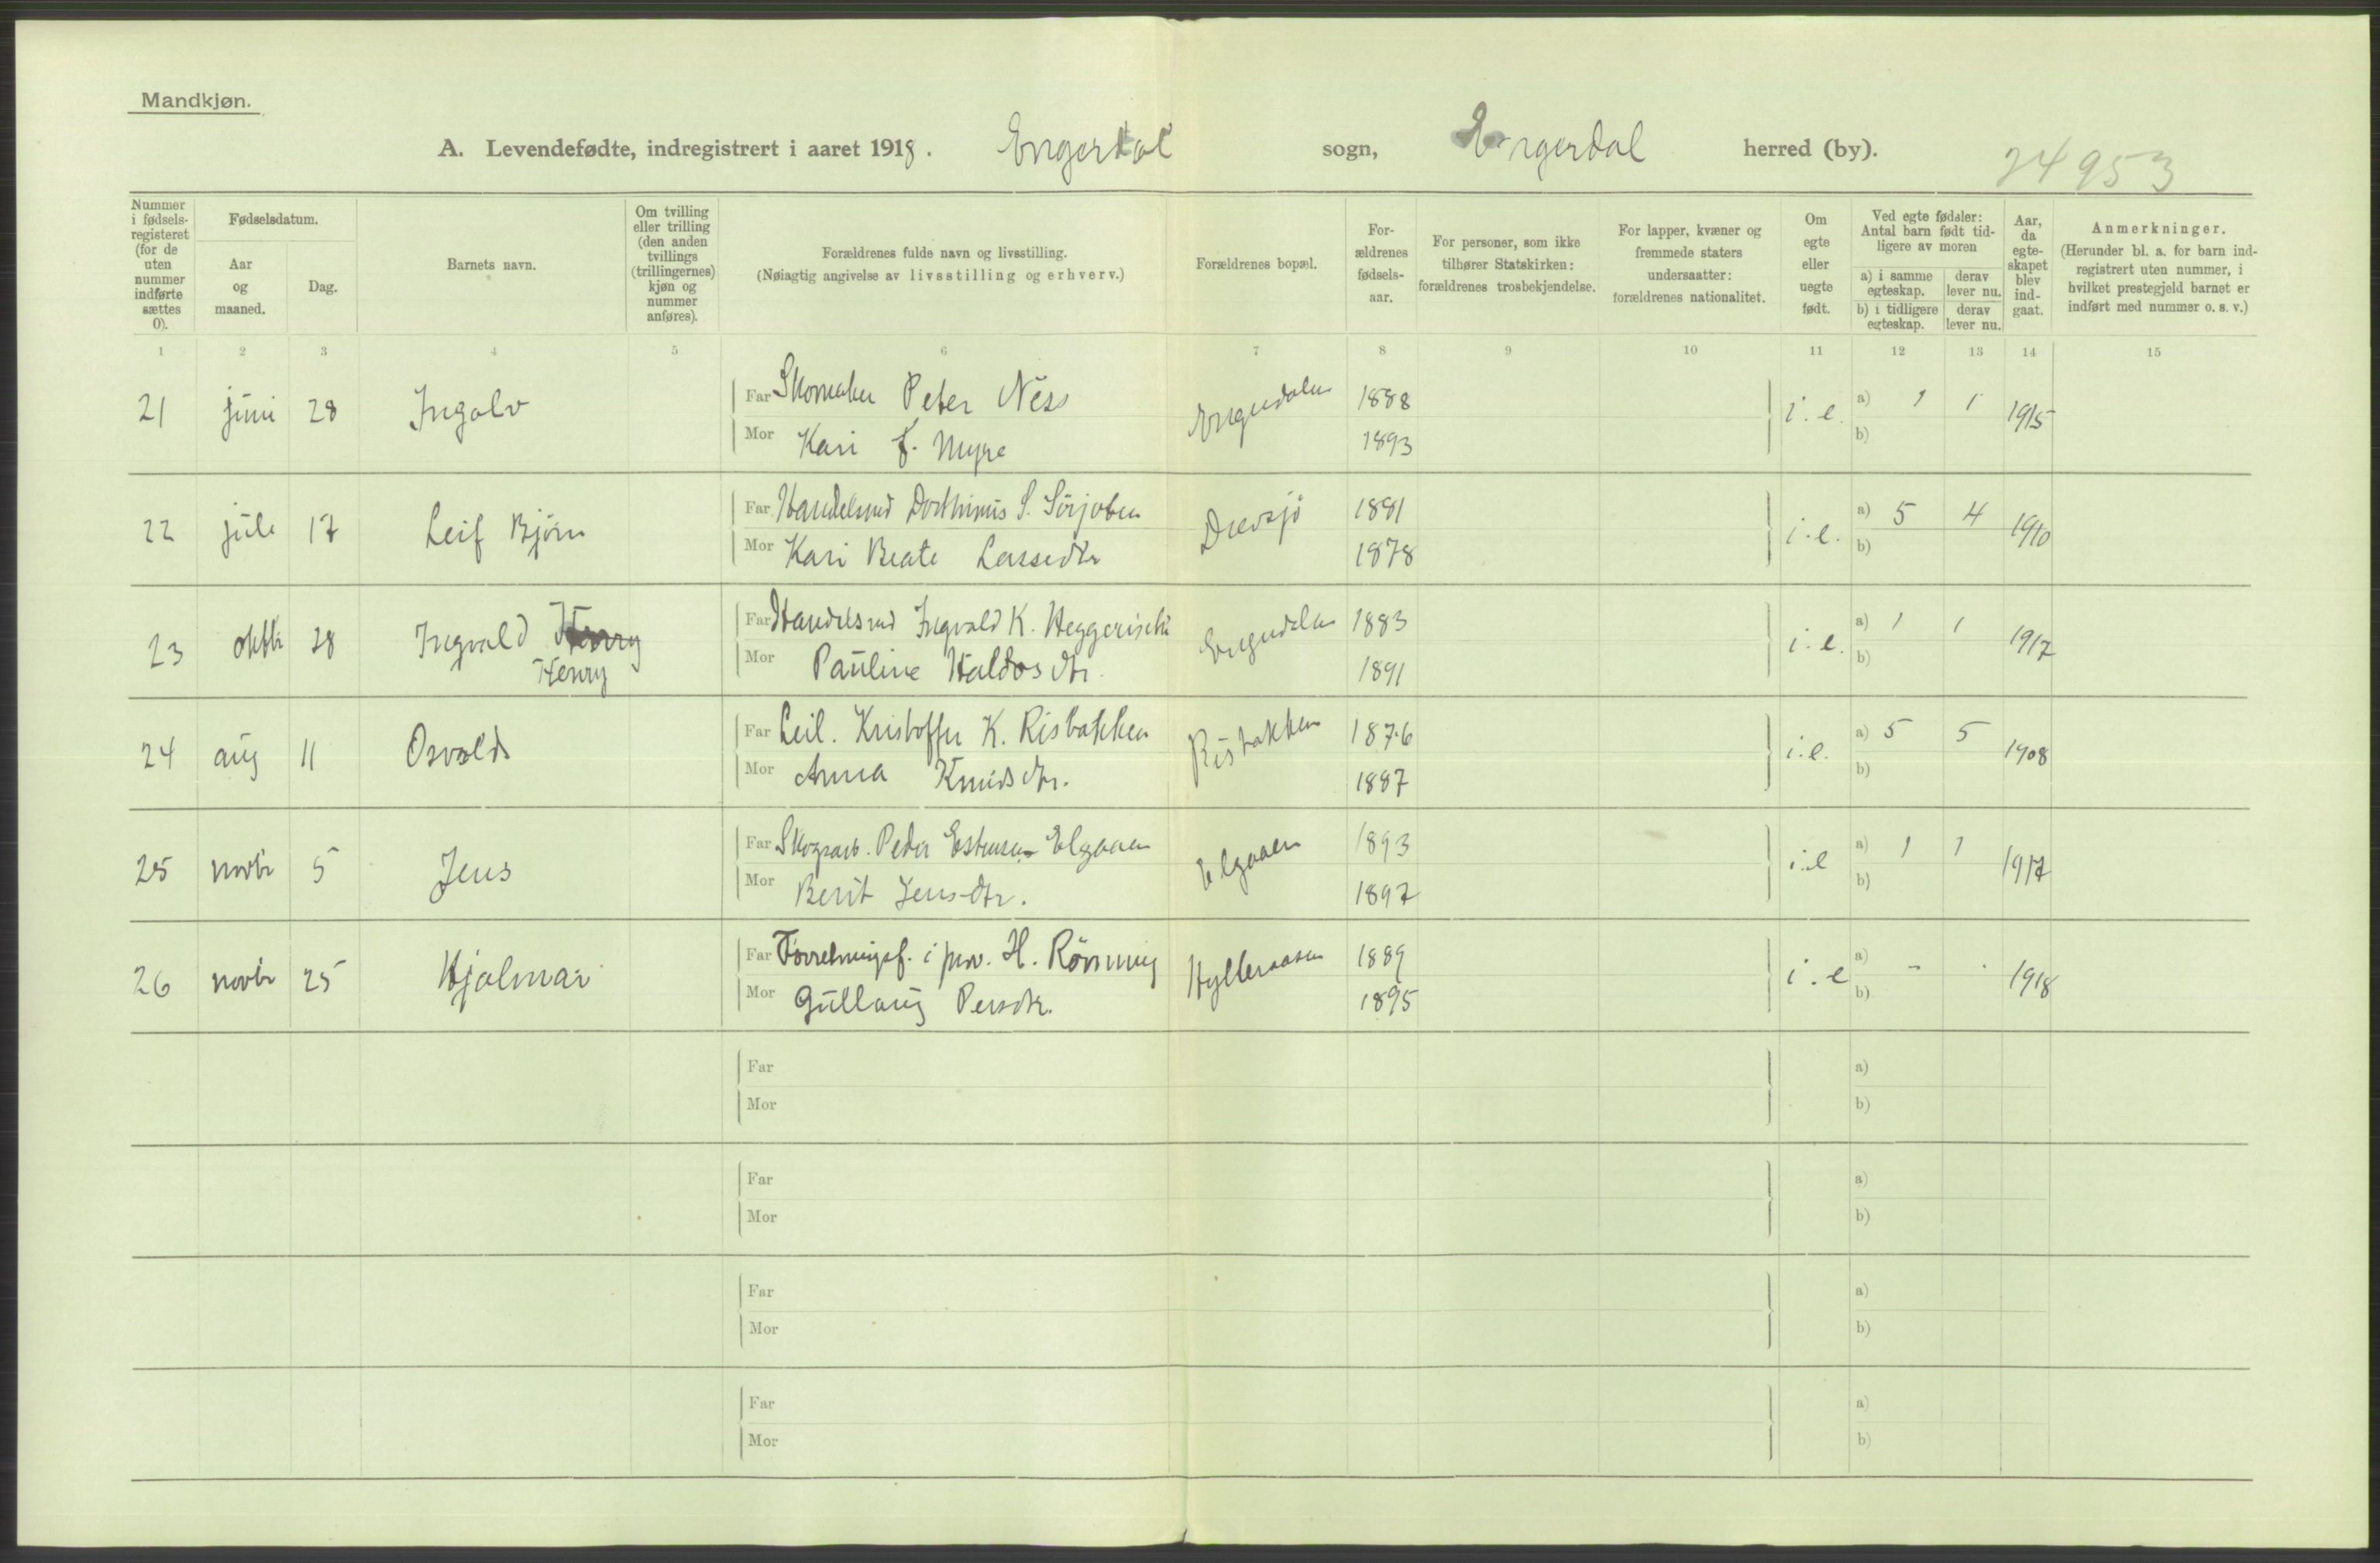 Mandkjøn.
A. Levendefødte, indregistrert i aaret 1918. Engerdal sogn, Engerdal herred (by). 24953
Nummer i fødsels-registeret (for de uten nummer indførte sættes 0).
Fødselsdatum.
Aar og maaned.
Dag.
Barnets navn.
Om tvilling eller trilling (den anden tvillings (trillingernes) kjøn og nummer anføres).
Forældrenes fulde navn og livsstilling.
(Nøiagtig angivelse av livsstilling og erhverv.)
Forældrenes bopæl.
For-ældrenes fødsels-aar.
For personer, som ikke tilhører Statskirken: forældrenes trosbekjendelse.
For lapper, kvæner og fremmede staters undersaatter: forældrenes nationalitet.
Om egte eller uegte født.
Ved egte fødsler: Antal barn født tid-ligere av moren
a) i samme egteskap.
derav lever nu.
b) i tidligere egteskap.
derav lever nu.
Aar, da egte-skapet blev ind-gaat.
Anmerkninger.
(Herunder bl. a. for barn ind-registrert uten nummer, i hvilket prestegjeld barnet er indført med nummer o. s. v.)
1 2 3 4 5 6 7 8 9 10 11 12 13 14 15
21 juni 28 Ingolv Far Skomaker Peter Ness Engerdalen 1888 i.e. a) 1 1 1915
Mor Kari J. Myre 1893 b)
22 juli 17 Leif Bjørn Far Handelsmd Dorthinus S. Drevsjö 1881 i.e. a) 5 4 1910
Mor Kari Beate Lassedtr 1878 b)
23 oktbr 28 Ingvald Henry Far Handelsmd Ingvald K. Engerdalen 1883 i.e. a) 1 1 1917
Henry Mor Pauline Haldosdtr. 1891 b)
24 aug 11 Osvald Far Leil. Kristoffer K. Risbakken Risbakken 1876 i.e. a) 5 5 1908
Mor Anna Knudsdtr. 1887 b)
25 novbr 5 Jens Far Skogsarb. Peder Estensen Elgaaen Elgaaen 1893 i.e a) 1 1 1917
Mor Berit Jensdtr. 1897 b)
26 novbr 25 Hjalmar Far Forretningsf. i prov. H. Rönning Hylleraasen 1889 i.e a) - - 1918
Mor Gullaug Persdtr. 1895 b)
Far a)
Mor b)
Far a)
Mor b)
Far a)
Mor b)
Far a)
Mor b)